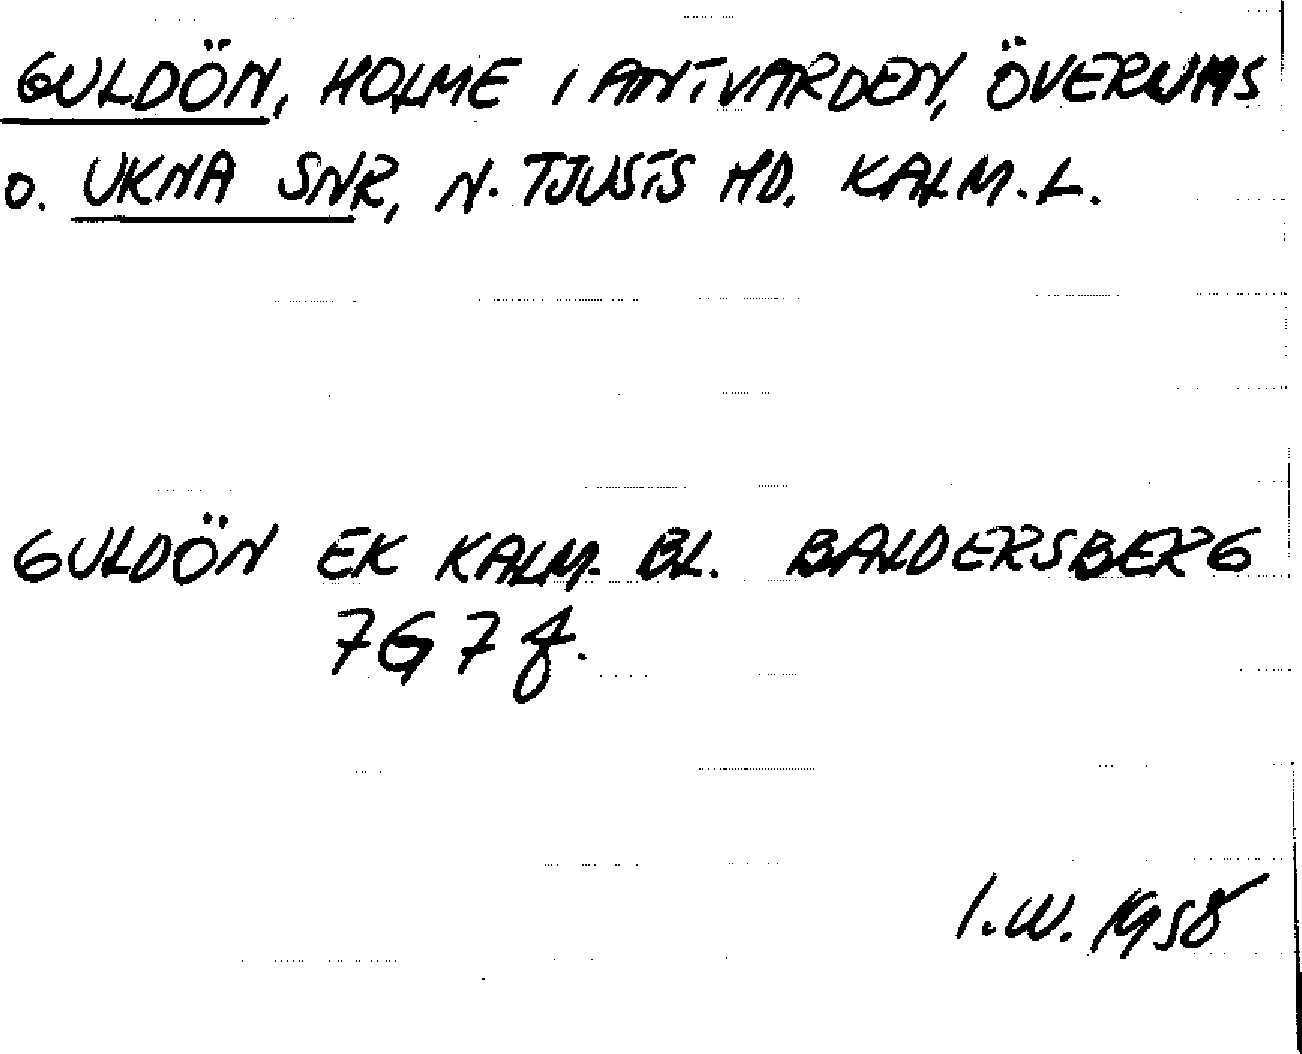 GULDÖN, HOLME I ANTVARDEN, ÖVERUMS
O. UKNA SNR, N. TJUSTS HD. KALM. L.
GULDÖN EK KALM. BL. BALDERSBERG
7G 7f.
I.W. 1958